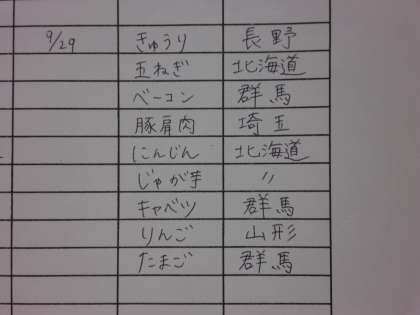 9/29 きゅうり 長野
玉ねぎ 北海道
ベーコン 群馬
豚肩肉 埼玉
にんじん 北海道
じゃが芋 〃
キャベツ 群馬
りんご 山形
たまご 群馬